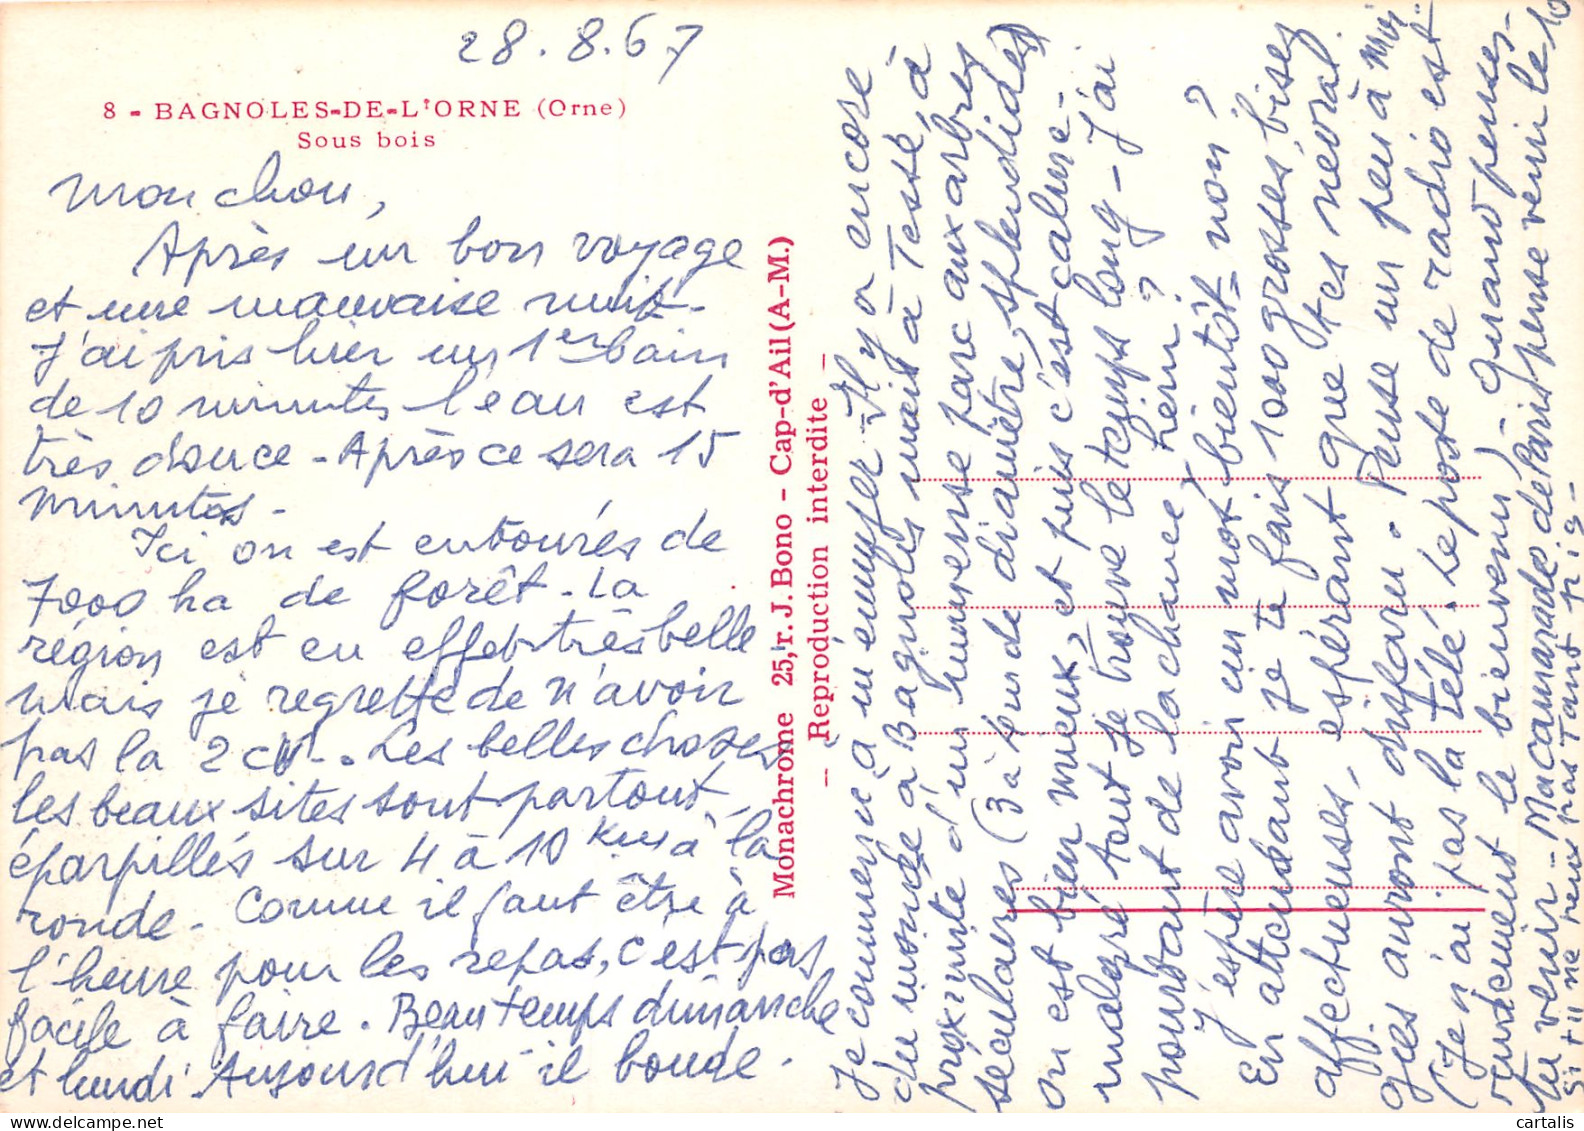 28.8.67
8 - BAGNOLES-DE-L'ORNE (Orne)
Sous bois
Mon chou,
Après un bon voyage
et une mauvaise nuit -
J'ai pris hier un 1er bain
de 10 minutes l'eau est
très douce - Après ce sera 15
minutes -
Ici on est entourés de
7000 ha de forêt - La
région est en effet très belle
mais je regrette de n'avoir
pas la 2 cv - Les belles choses
les beaux sites sont partout,
éparpillés sur 4 à 10 kms à la
ronde - Comme il faut être à
l'heure pour les repas, c'est pas
facile à faire. Beau temps dimanche
et lundi Aujourd'hui il boude -
Monachrome 25, r. J. Bono - Cap-d'Ail (A-M.)
— Reproduction interdite —
Je commence à m'ennuyer - Il y a encore
du monde à Bagnoles mais à Tessé, à
proximité d'un immense parc aux arbres
séculaires (3 à 4 m de diamètre, splendides)
on est bien mieux, et puis c'est calme -
malgré tout je trouve le temps long - J'ai
pourtant de la chance, hein ?
J'espère avoir un mot bientôt = non ?
En attendant je te fais 1000 grosses bises
affectueuses, espérant que tes névral.
gies auront disparu. Pense un peu à Mij..
(Je n'ai pas la télé. Le poste de radio est
rudement le bienvenu) - Quand penses-
tu venir - Ma camarade de Paris pense venir le 10
Si tu ne peux pas Tant pis -
cartalis